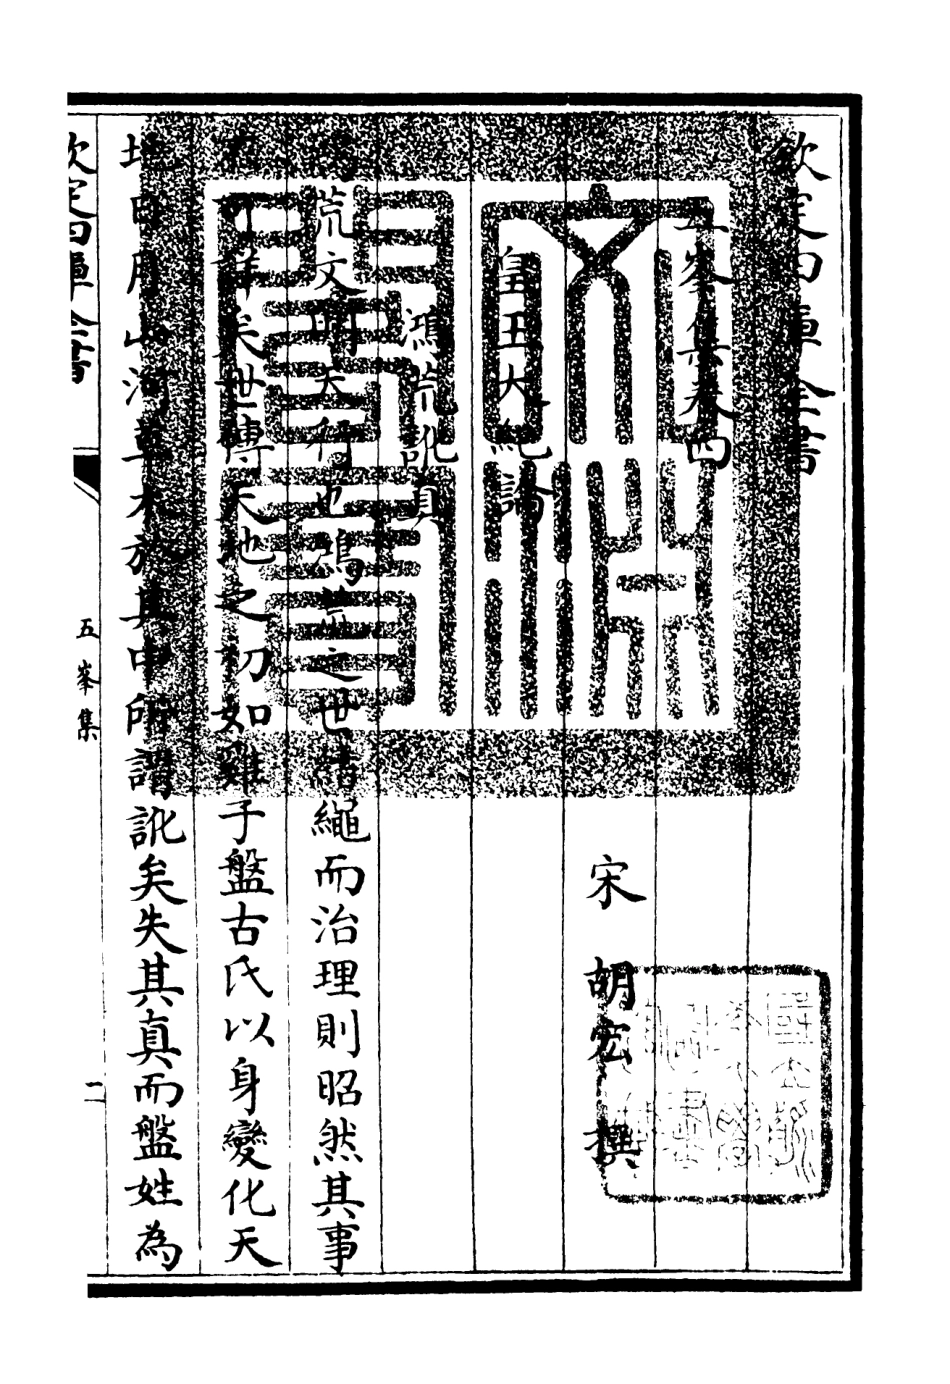 欽定四庫全書
五峯集卷四
宋 胡宏 撰
皇王大紀論
鴻荒訛真
鴻荒文明天行也鴻荒之世結繩而治理則昭然其事
可詳矣世傳天地之初如雞子盤古氏以身變化天
地日月山河草木於其中所謂訛矣失其真而盤姓為
欽定四庫全書
五峯集
二
文淵閣寶